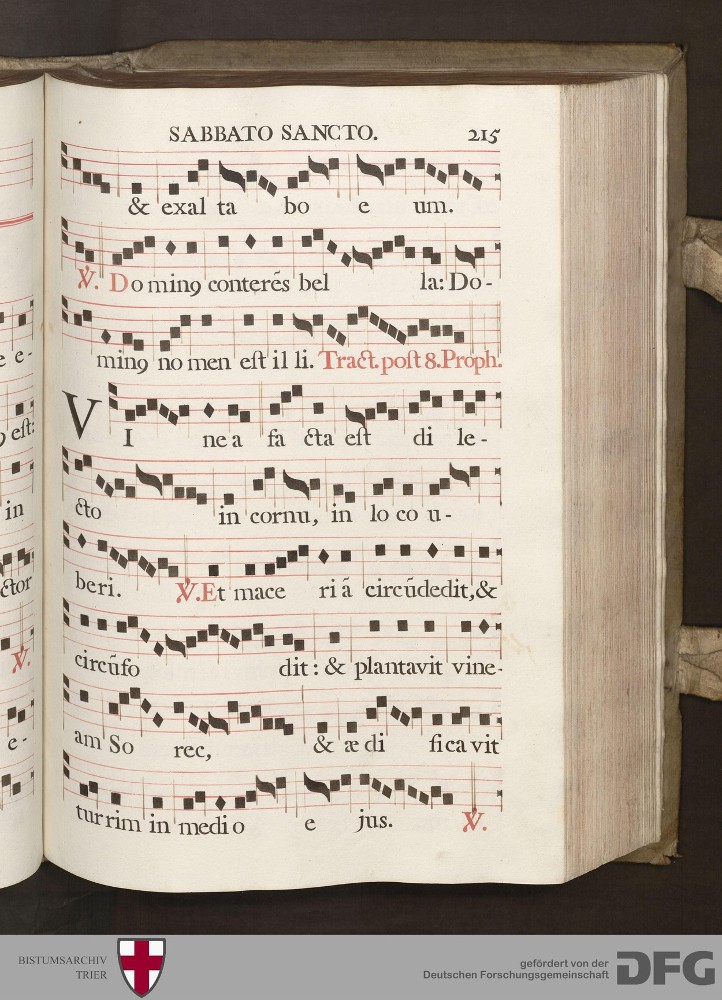 SABBATO SANCTO. 215
& exal ta bo e um.
℣. Do minꝯ conterẽs bel la: Do-
minꝯ no men est il li. Tract. post 8. Proph.
e e-
VI ne a fa cta est di le-
ꝯ est:
cto in cornu, in lo co u-
in
beri. ℣. Et mace ri ã circũdedit, &
ctor
circũfo dit: & plantavit vine-
℣.
am So rec, & ædi fi ca vit
e-
tur rim in medi o e jus. ℣.
BISTUMSARCHIV
TRIER
gefördert von der
Deutschen Forschungsgemeinschaft
DFG